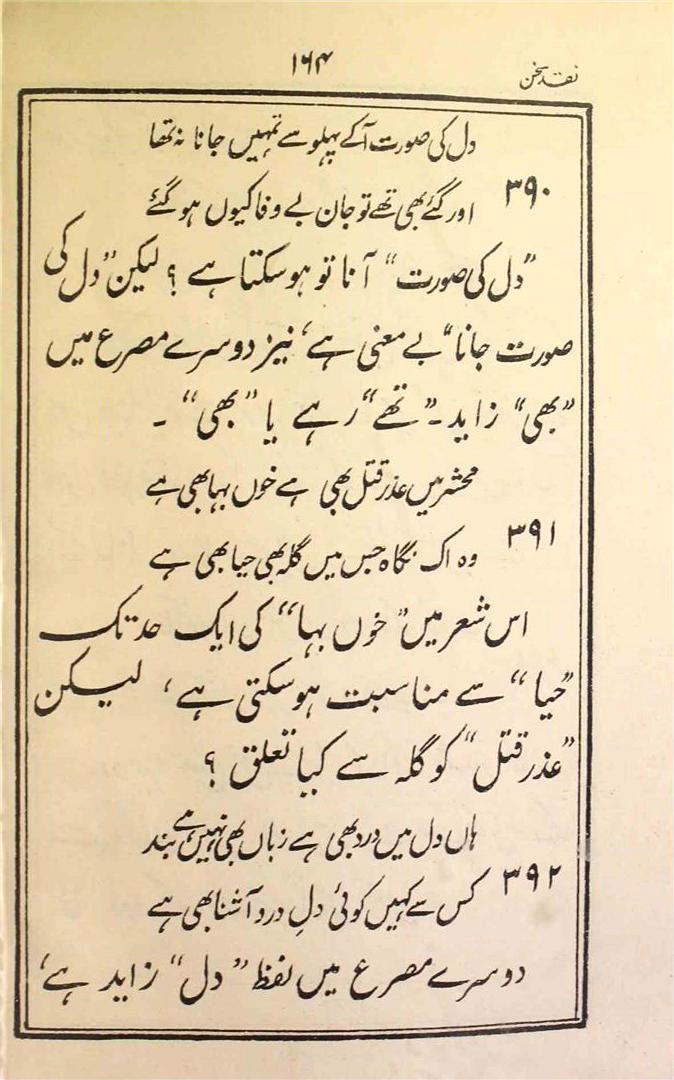 نقد سخن
۱۶۴
دل کی صورت آکے پہلو سے تمہیں جانا نہ تھا
۳۹۰
اور گئے بھی تھے تو جان بے وفا کیوں ہو گئے
”دل کی صورت“ آنا تو ہو سکتا ہے ؟ لیکن ”دل کی
صورت جانا“ بے معنی ہے، نیز دوسرے مصرع میں
”بھی“ زاید۔ ”تھے“ رہے یا ”بھی“ ۔
محشر میں عذر قتل بھی ہے خوں بہا بھی ہے
۳۹۱
وہ اک نگاہ جس میں گلہ بھی حیا بھی ہے
اس شعر میں ”خوں بہا“ کی ایک حد تک
”حیا“ سے مناسبت ہو سکتی ہے ، لیکن
”عذر قتل“ کو گلہ سے کیا تعلق ؟
ہاں دل میں درد بھی ہے زباں بھی نہیں ہے بند
۳۹۲
کس سے کہیں کوئی دلِ درد آشنا بھی ہے
دوسرے مصرع میں لفظ ”دل“ زاید ہے،